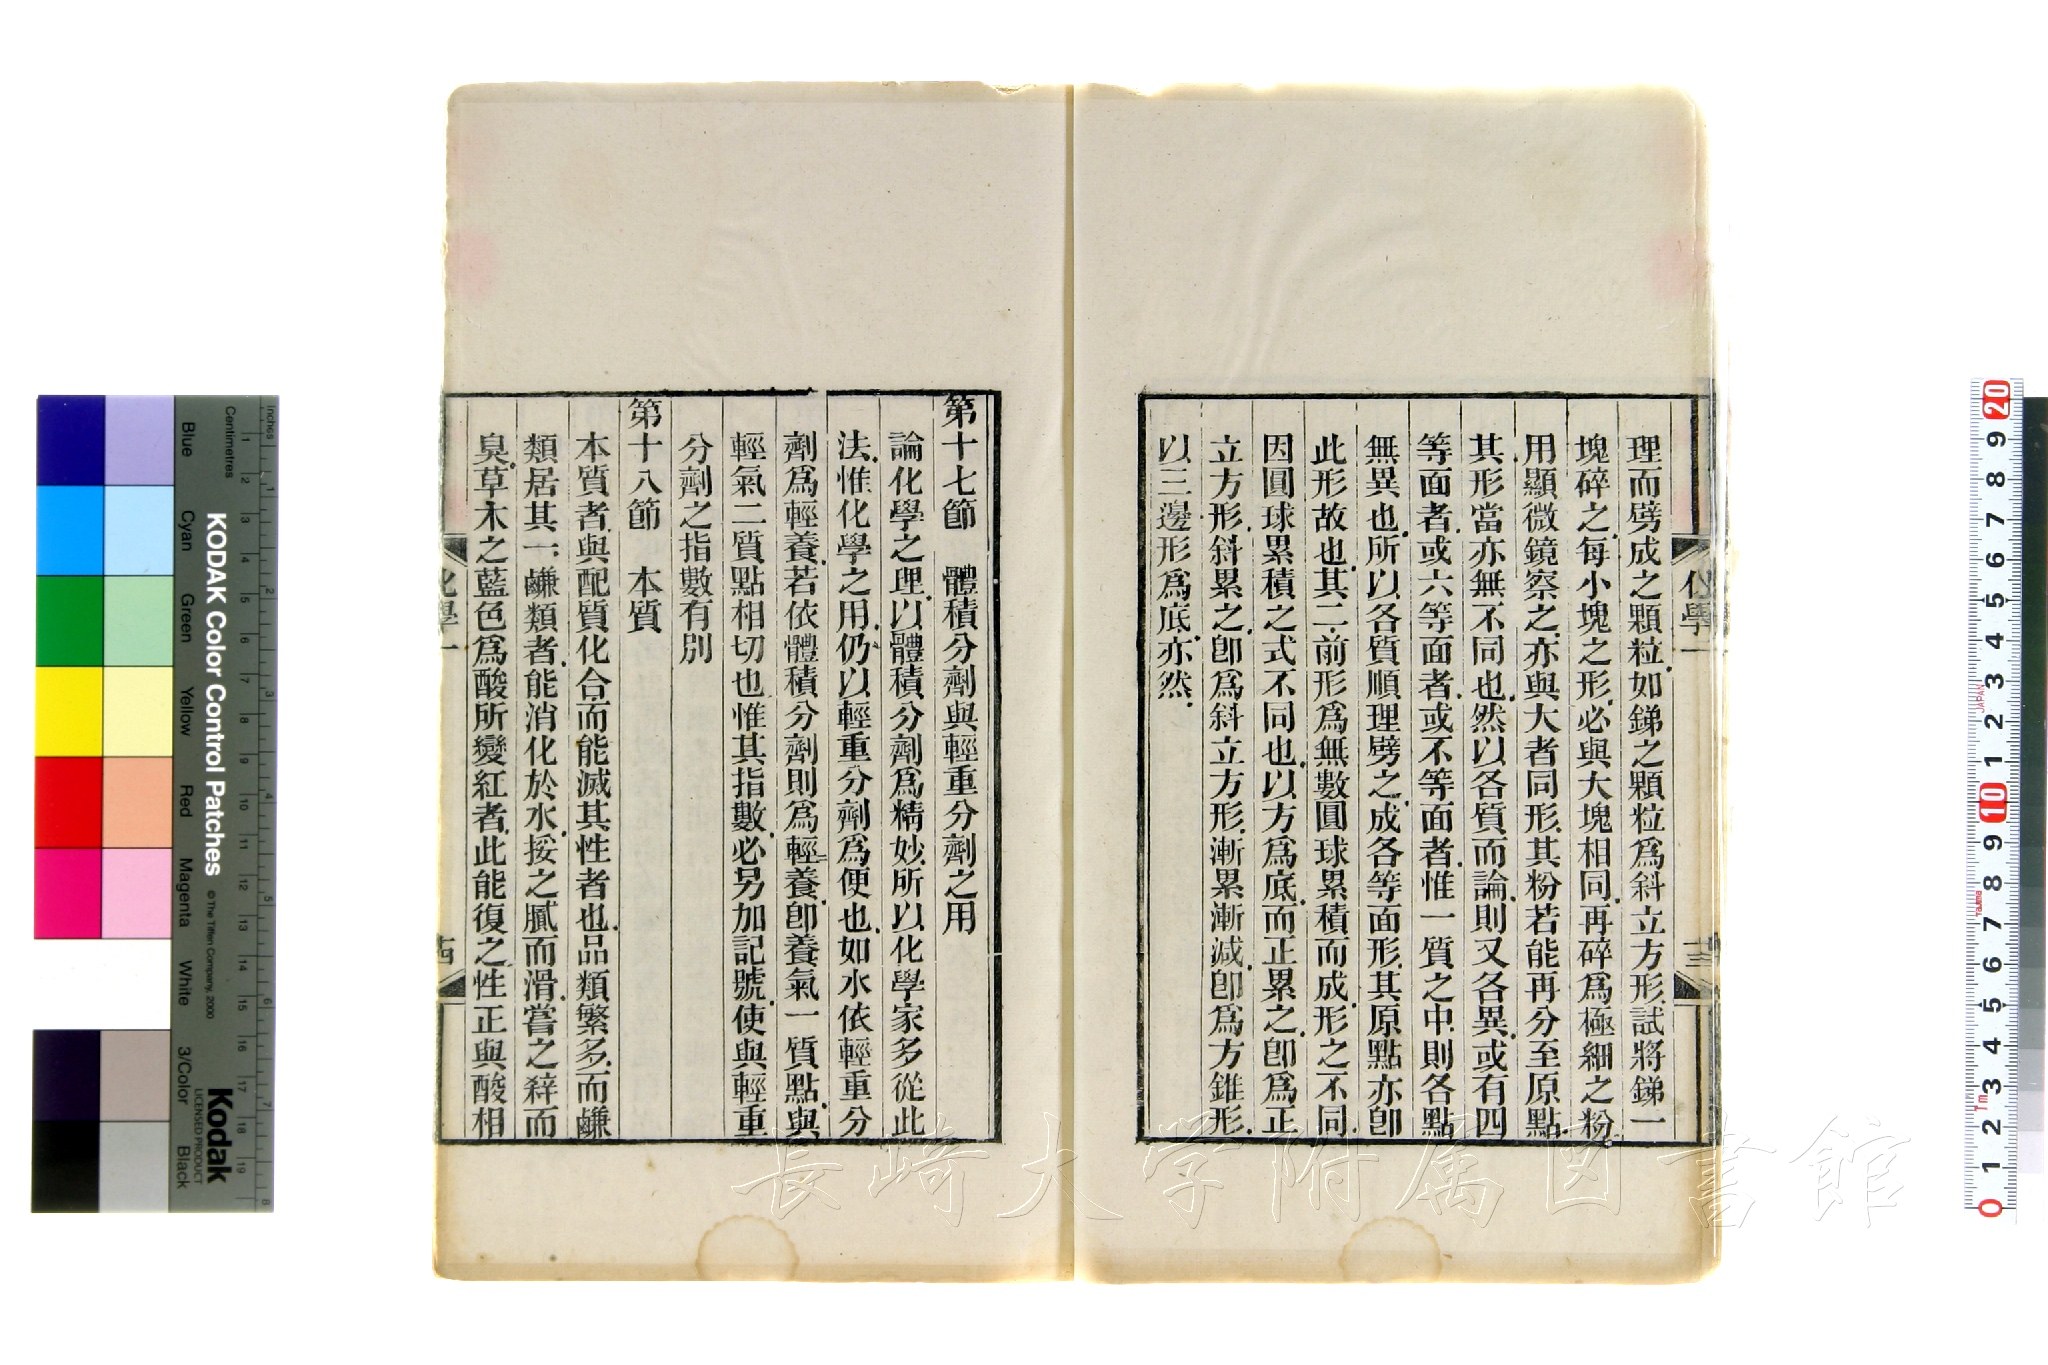 理而劈成之顆粒.如銻之顆粒爲斜立方形.試將銻一
塊碎之.每小塊之形.必與大塊相同.再碎爲極細之粉.
用顯微鏡察之.亦與大者同形.其粉若能再分至原點.
其形當亦無不同也.然以各質而論.則又各異.或有四
等面者.或六等面者.或不等面者.惟一質之中.則各點
無異也.所以各質順理劈之.成各等面形.其原點亦卽
此形故也.其二.前形爲無數圓球累積而成.形之不同.
因圓球累積之式不同也.以方爲底.而正累之.卽爲正
立方形.斜累之.卽爲斜立方形.漸累漸減.卽爲方錐形.
以三邊形爲底.亦然.
化學一
十三
第十七節 體積分劑與輕重分劑之用
論化學之理.以體積分劑爲精妙.所以化學家多從此
法.惟化學之用.仍以輕重分劑爲便也.如水依輕重分
劑爲輕養.若依體積分劑則爲輕二養.卽養氣一質點.與
輕氣二質點相切也.惟其指數.必另加記號.使與輕重
分劑之指數有別
第十八節 本質
本質者.與配質化合.而能滅其性者也.品類繁多.而鹼
類居其一.鹼類者.能消化於水.挼之膩而滑.嘗之辢而
臭.草木之藍色爲酸所變紅者.此能復之.性正與酸相
化學一
十四
KODAK Color Control Patches
© The Tiffen Company, 2000
Kodak
LICENSED PRODUCT
Inches
Centimetres
Blue Cyan Green Yellow Red Magenta White 3/Color Black
1 2 3 4 5 6 7 8
1 2 3 4 5 6 7 8 9 10 11 12 13 14 15 16 17 18 19
20 9 8 7 6 5 4 3 2 1 10 9 8 7 6 5 4 3 2 1 0
JAPAN
Tajima
Tm
長崎大学附属図書館